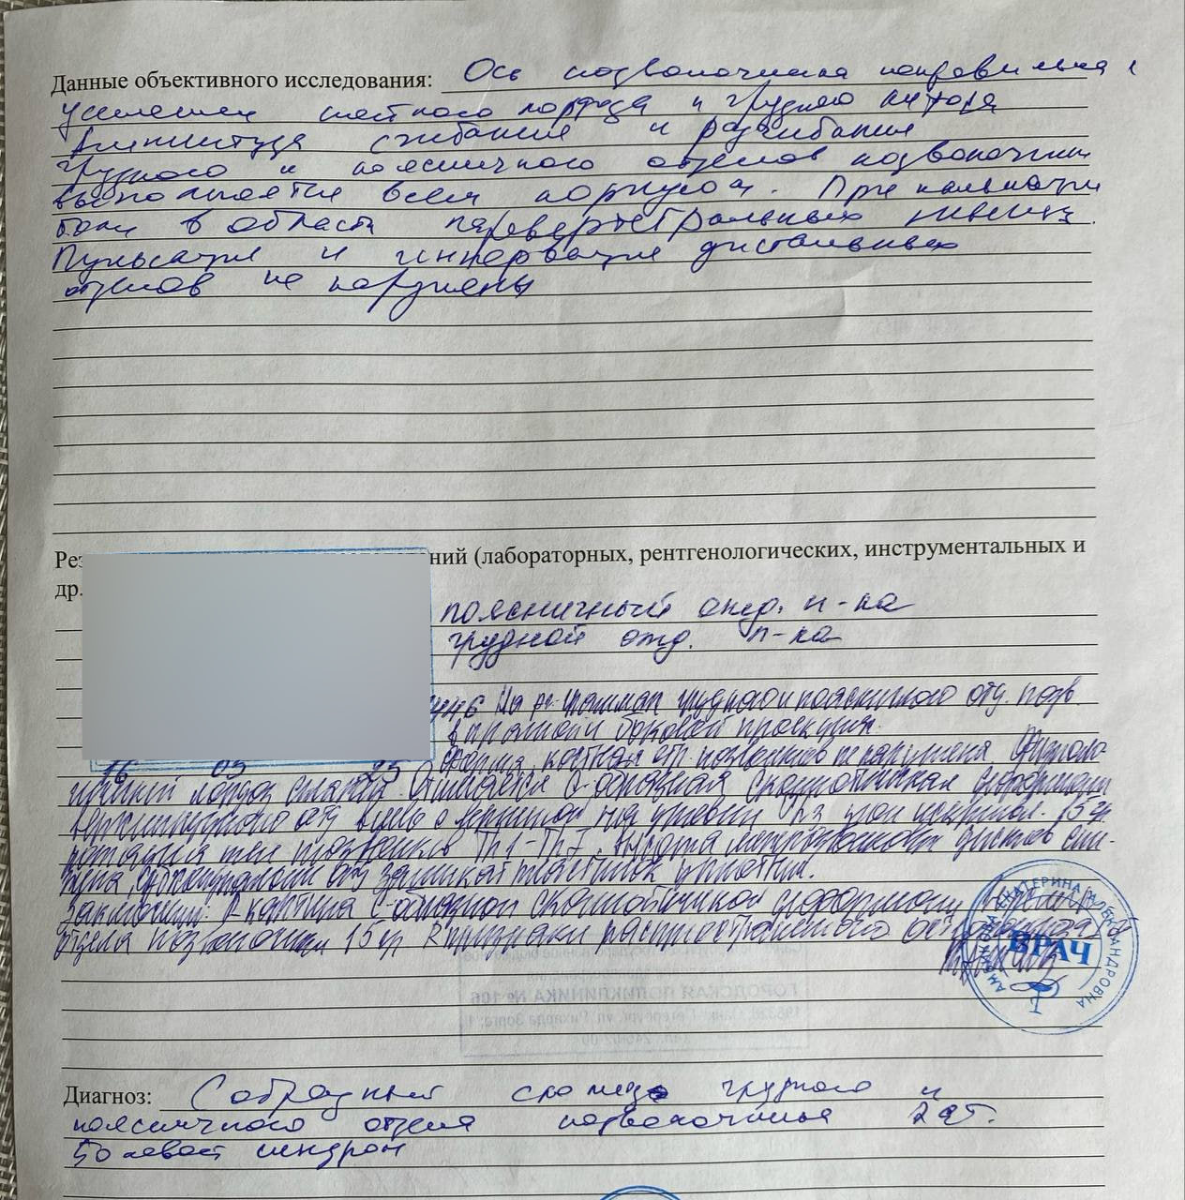 Данные объективного исследования: Ось позвоночника неправильная,
усиление шейного лордоза и грудного кифоза
Амплитуда сгибания и разгибания
грудного и поясничного отделов позвоночника
выполняется всем корпусом. При пальпации
боли в области паравертебральных мышц.
Пульсация и иннервация дистальных
отделов не нарушены
Рез ний (лабораторных, рентгенологических, инструментальных и
др.
поясничный отд. п-ка
грудной отд. п-ка
На грудного и поясничного отд. позв.
в прямой боковой проекциях.
16 03 23 Форма, позвонков не нарушена. Физиоло-
гичный лордоз сглажен. Отмечается С-образная сколиотическая деформация
отд влево с вершиной на уровне 15 гр
ротация тел позвонков Th1-Th7, высота межпозвонковых дисков сни-
жена, замыкат пластинок уплотнен.
Заключение: R-картина С-образной сколиотической деформации
отдела позвоночника 15 гр R признаки распространенного
ЕКАТЕРИНА АЛЕКСАНДРОВНА
ВРАЧ
ГОРОДСКАЯ ПОЛИКЛИНИКА № 106
Диагноз: S образный сколиоз грудного и
поясничного отдела позвоночника 2 ст.
болевой синдром